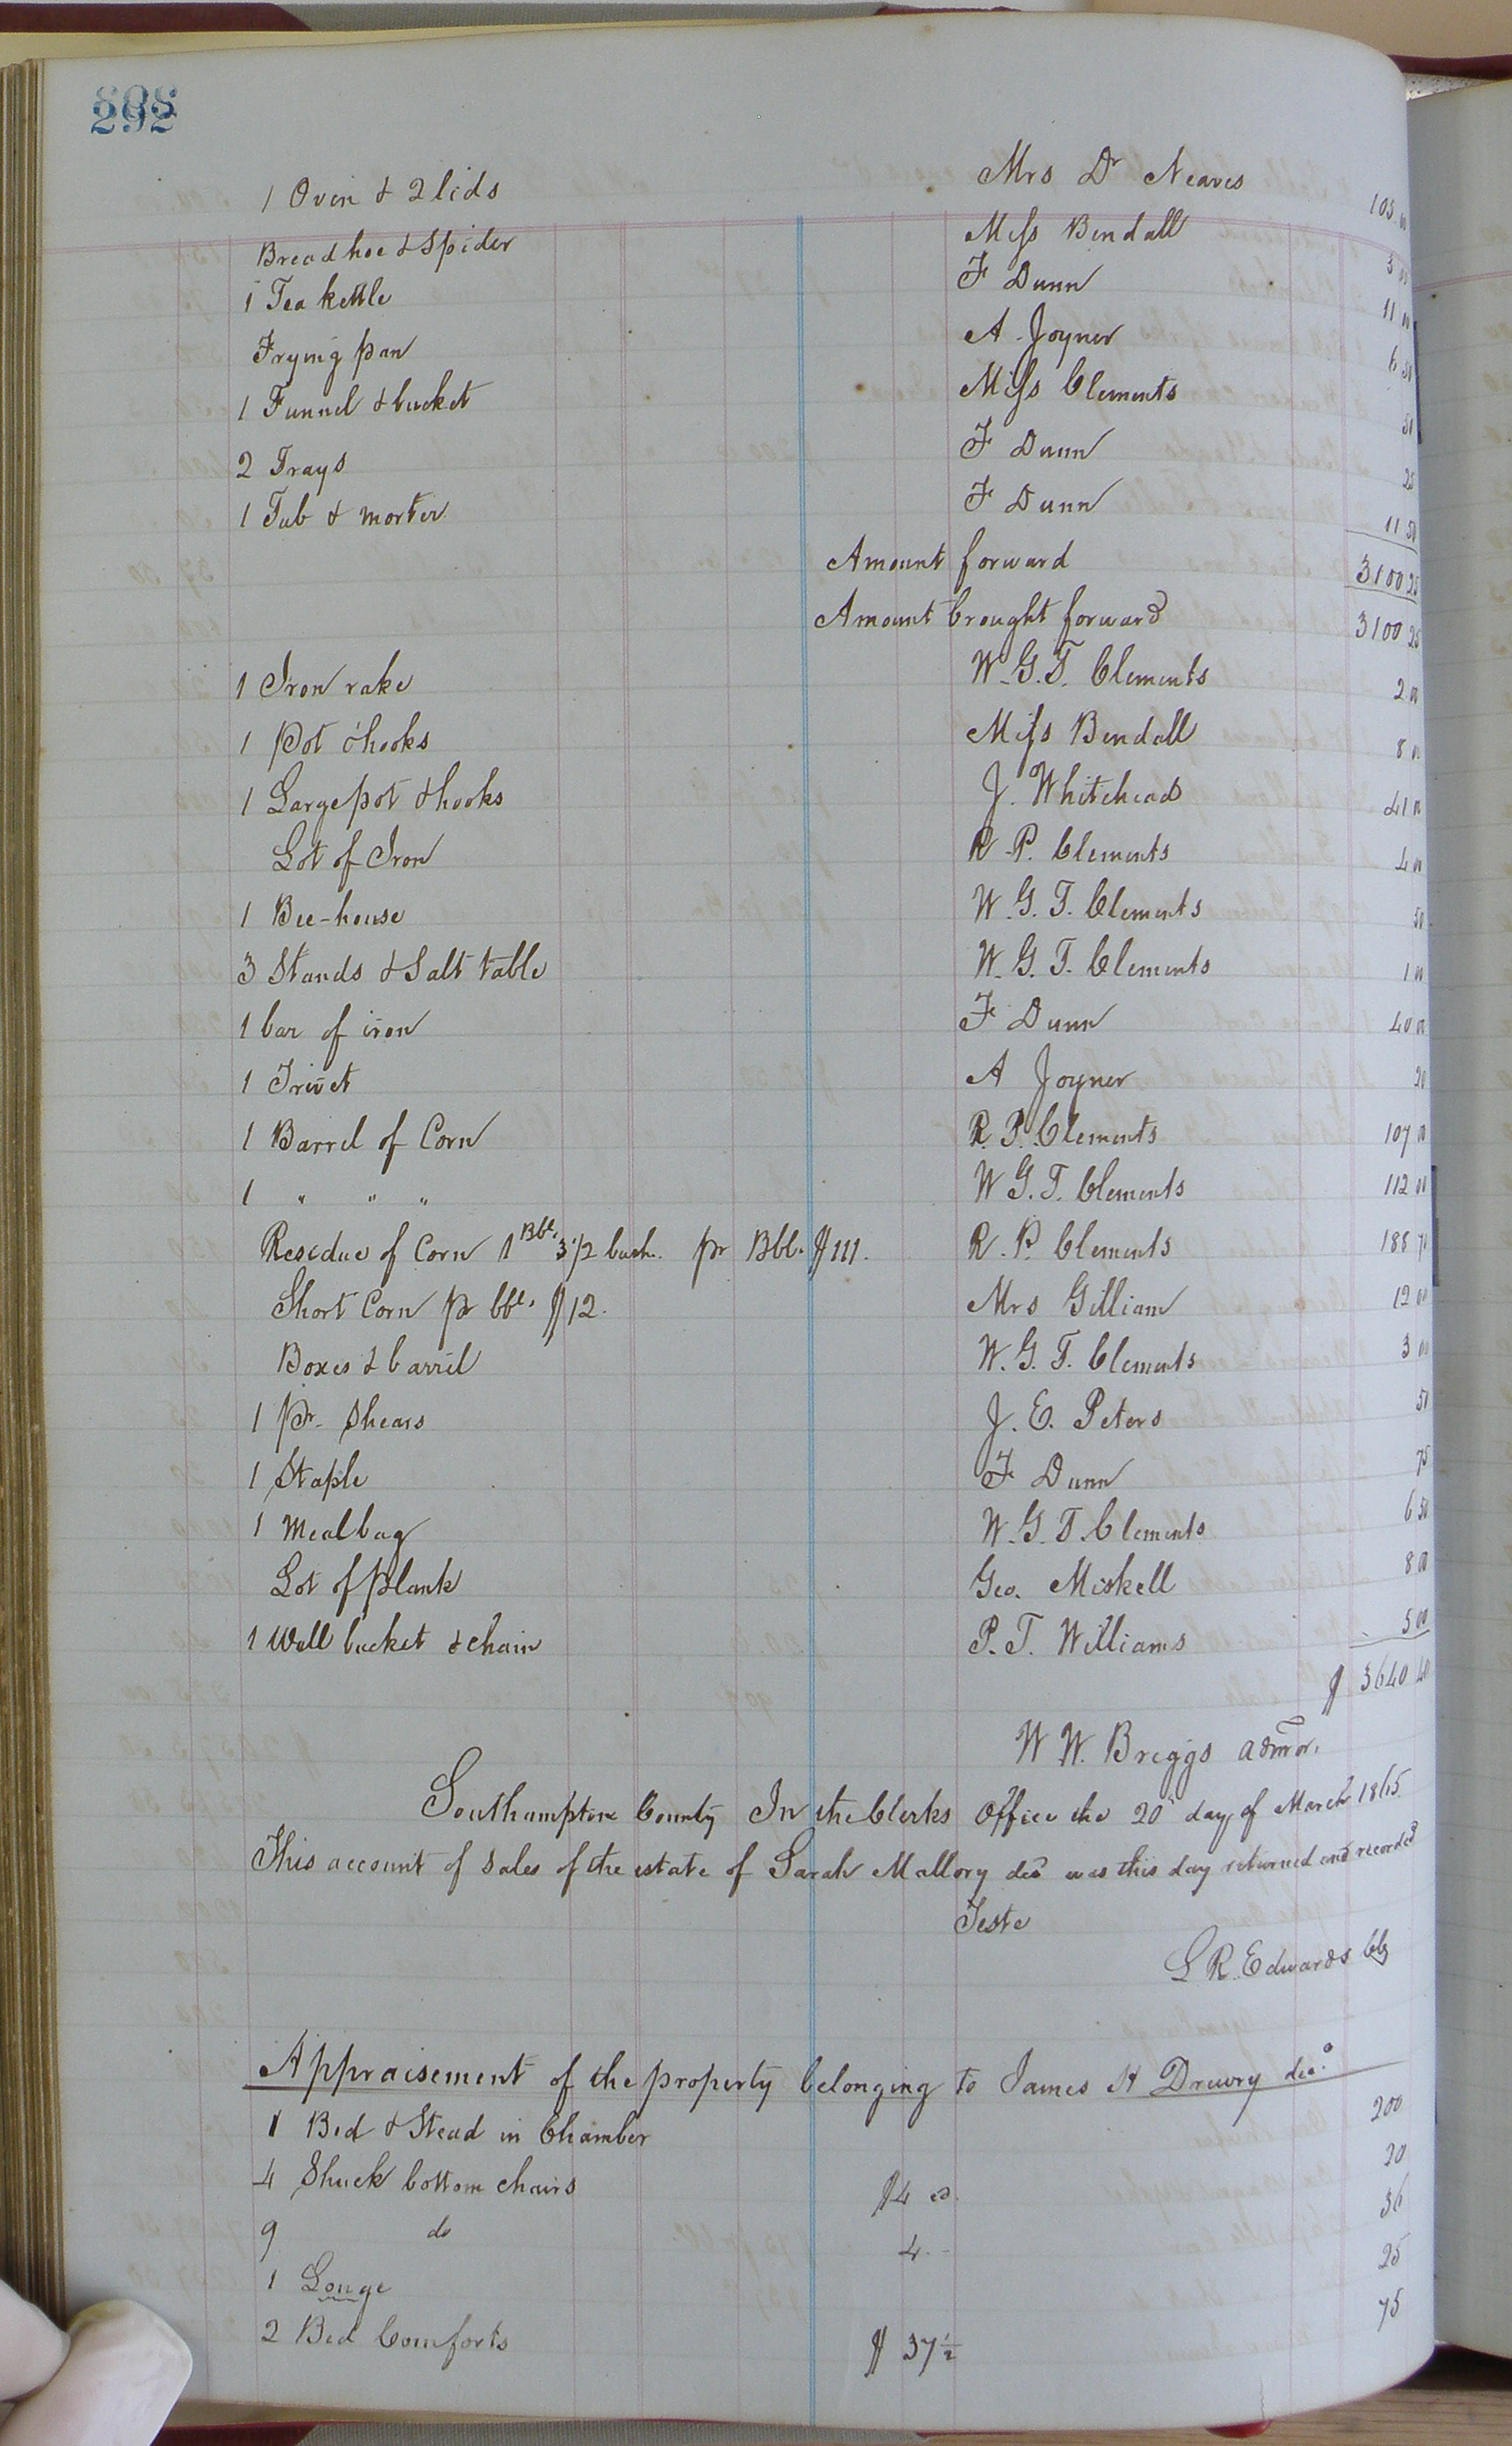 292
1 Oven & 2 lids Mrs Dr Neaves 105 00
Bread hoe & Spider Miss Bendall 3 00
1 Tea kettle F Dunn 11 00
Frying pan A. Joyner 6 50
1 Funnel & bucket Miss Clements 50
2 Trays F Dunn 25
1 Tub & morter F Dunn 11 50
Amount forward 3100 25
Amount brought forward 3100 25
1 Iron rake W. G. T. Clements 2 00
1 Pot & hooks Miss Bendall 8 00
1 Large pot & hooks J. Whitehead 41 00
Lot of Iron R. P. Clements 4 00
1 Bee-house W. G. T. Clements 50
3 Stands & Salt table W. G. T. Clements 1 00
1 bar of iron F Dunn 40 00
1 Trivet A Joyner 20
1 Barrel of Corn R. P. Clements 107 00
1 " " " W G. T. Clements 112 00
Residue of Corn 1 Bbl. 3 1/2 bush. pr Bbl. $111. R. P. Clements 188 70
Short Corn pr bbl. $12. Mrs Gilliam 12 00
Boxes & barril W. G. T. Clements 3 00
1 Pr. Shears J. E. Peters 50
1 Staple F Dunn 75
1 Mealbag W. G. T. Clements 6 50
Lot of plank Geo. Miskell 8 00
1 Well bucket & chain P. T. Williams 5 00
$ 3640 40
W W. Briggs admor.
Southampton County In the Clerks Office the 20" day of March 1865.
This account of sales of the estate of Sarah Mallory decd was this day returned and recorded
Teste
L R. Edwards Clk
Appraisement of the property belonging to James H Drewry decd.
1 Bed & Stead in Chamber 200
4 Shuck bottom chairs $4 20
9 do 4. - 36
1 Longe 25
2 Bed Comforts $ 37 1/2 75